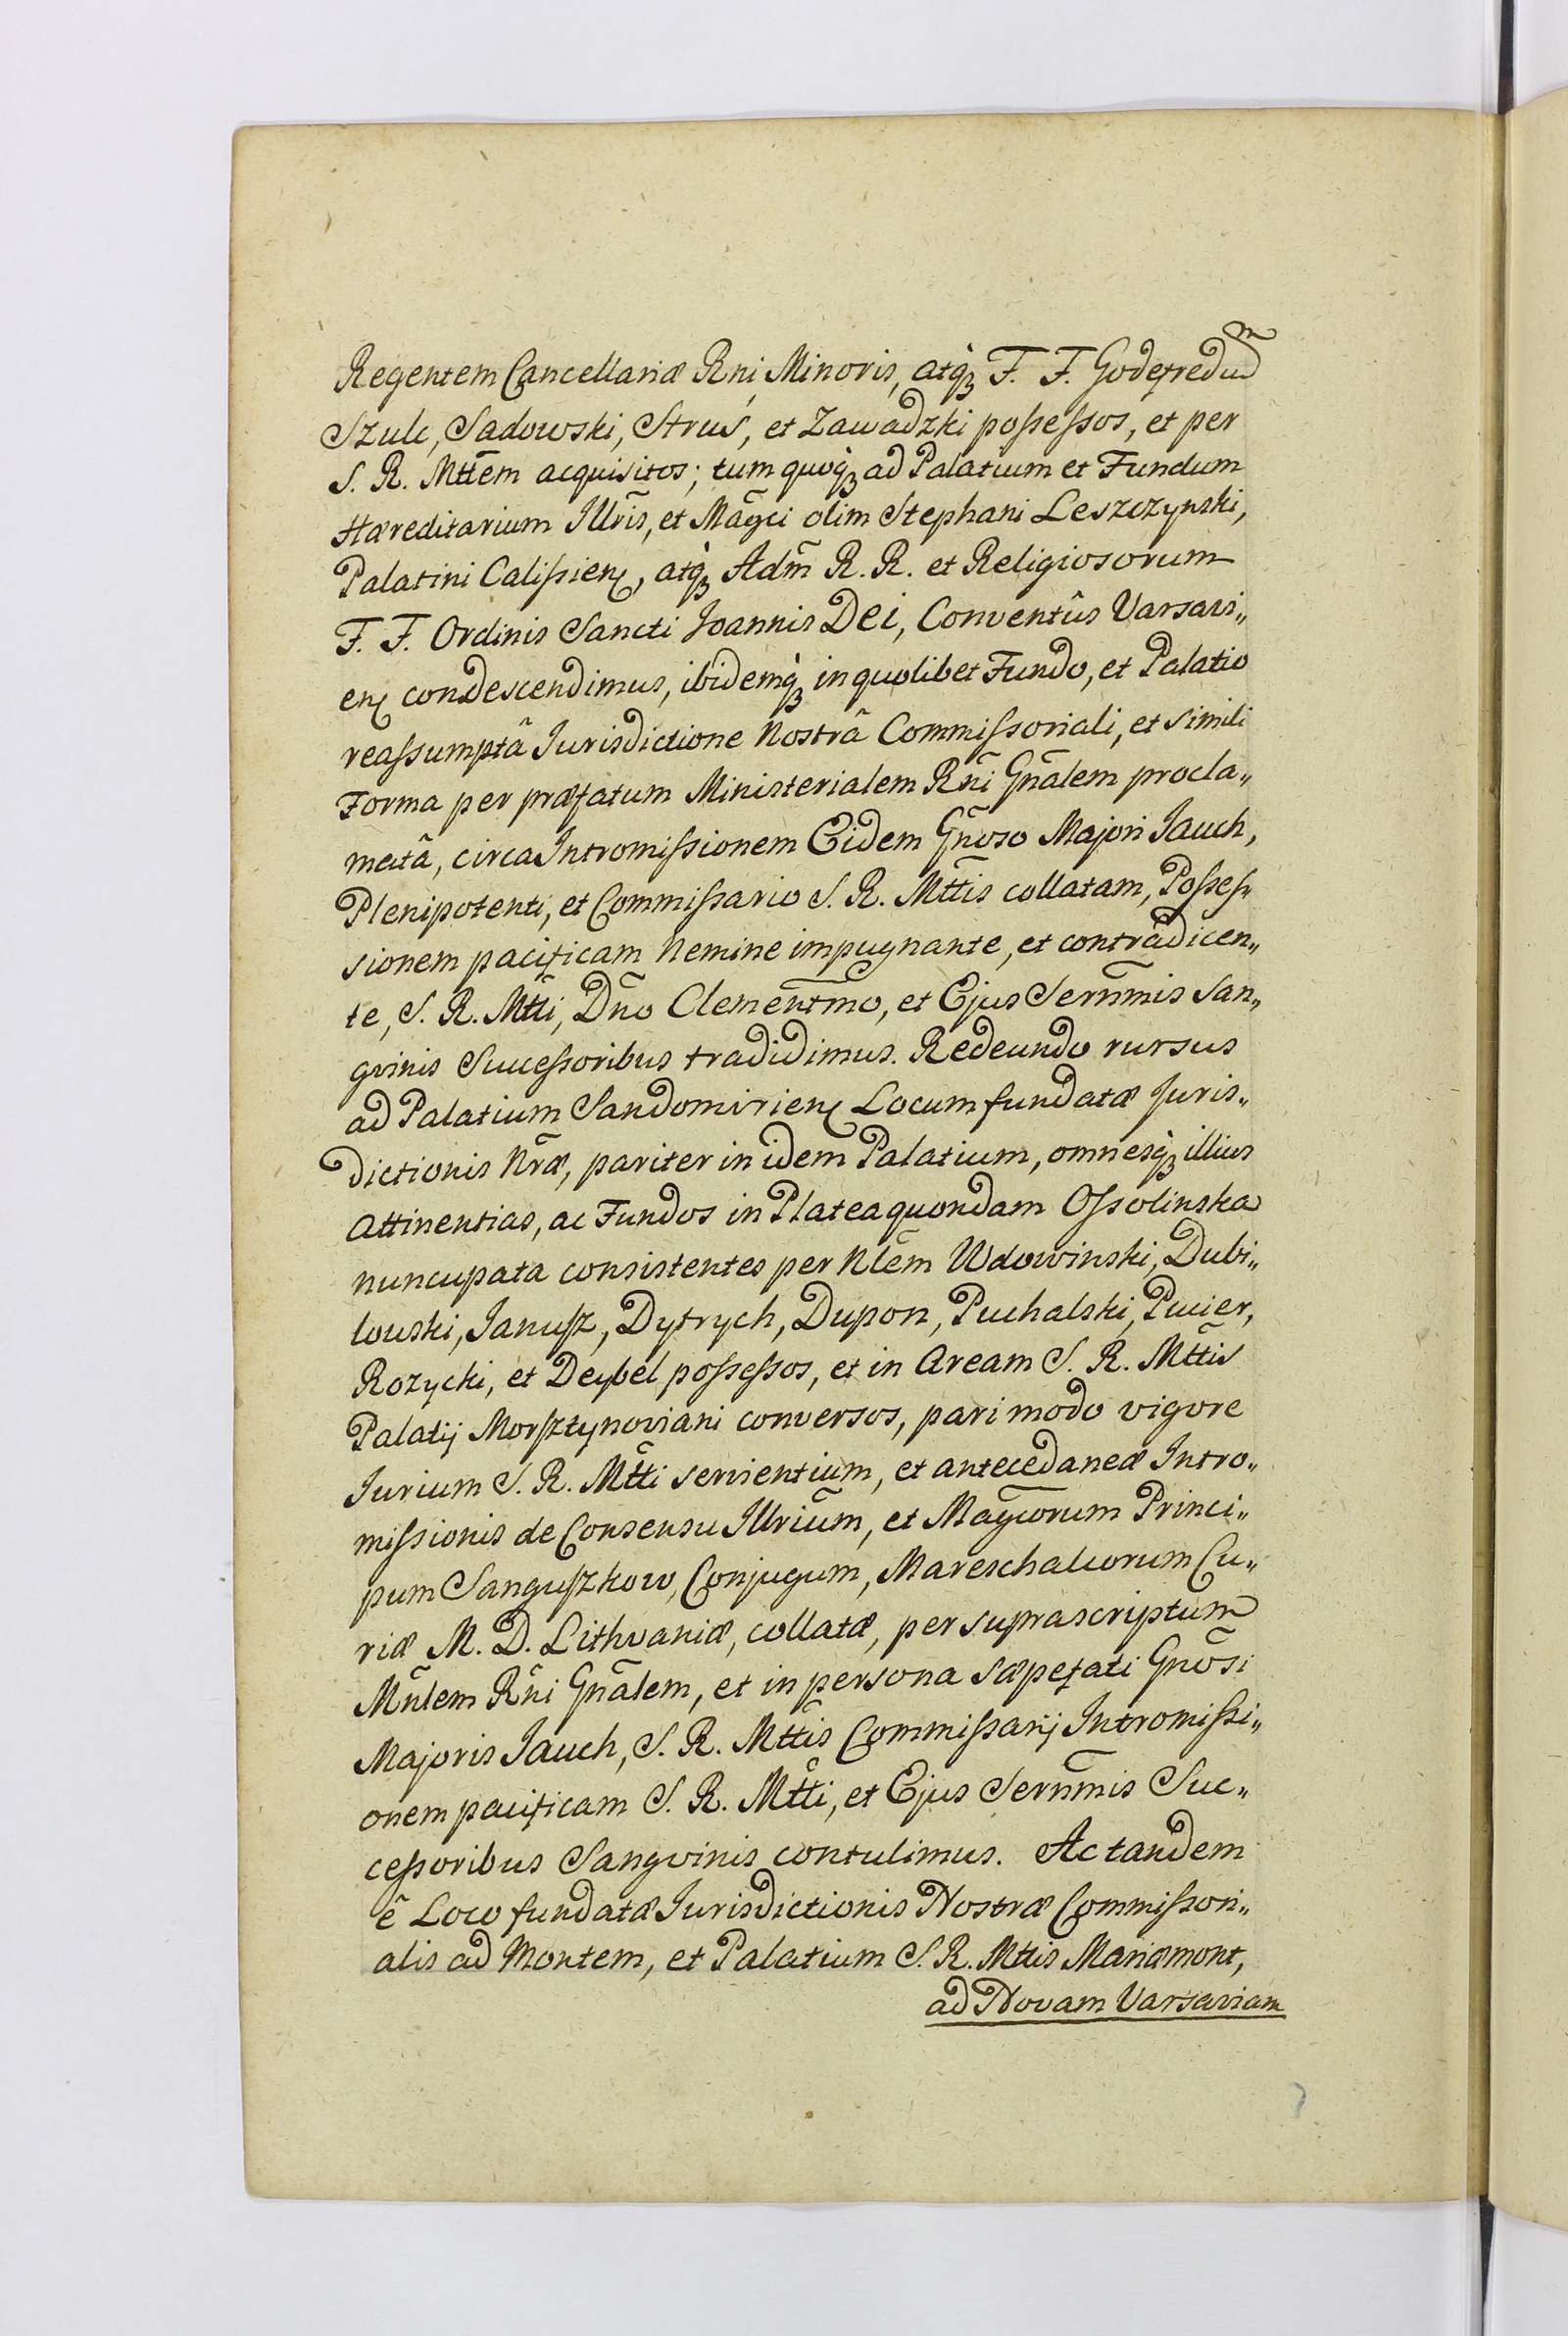 Regentem Cancellariæ Rni Minoris, atq́ꝫ F. F. Godefredum
Szulc, Sadowski, Strus, et Zawadzki poſseſsos, et per
S. R. Mttem acquisitos; tum quoq́ꝫ ad Palatium et Fundum
Hæreditarium Illris, et Magci olim Stephani Leszczynski,
Palatini Caliſsien, atq́ꝫ Adm̄ R. R. et Religiosorum
F. F. Ordinis Sancti Joannis Dei, Conventûs Varsavi„
en condescendimus, ibidemq́ꝫ in quolibet Fundo, et Palatio
reaſsumptâ Jurisdictione Nostrâ Commiſsoriali, et simili
Forma per præfatum Ministerialem Rñi Gñalem procla„
matâ, circa Intromiſsionem Eidem Gñoso Majori Jauch,
Plenipotenti, et Commiſsario S. R. Mttis collatam, Poſseſ„
sionem pacificam Nemine impugnante, et contradicen„
te, S. R. Mtti, Dño Clementmo, et Ejus Sernmis San„
gvinis Succeſsoribus tradidimus. Redeundo rursus
ad Palatium Sandomirien Locum fundatæ Juris„
dictionis Nræ, pariter in idem Palatium, omnesq́ꝫ illius
Attinentias, ac Fundos in Platea quondam Oſsolinska
nuncupata consistentes per Nlem Wdowinski, Dubi„
lowski, Januſz, Dytrych, Dupon, Puchalski, Pucier,
Rozycki, et Deybel poſseſsos, et in Aream S. R. Mttis
Palatij Morſztynoviani conversos, pari modo vigore
Jurium S. R. Mtti servientium, et antecedaneæ Intro„
miſsionis de Consensu Illrium, et Magcorum Princi„
pum Sanguſzkow, Conjugum, Mareschalcorum Cu„
riæ M. D. Lithvaniæ, collatæ, per suprascriptum
Mñlem Rñi Gñalem, et in persona sæpefati Gñosi
Majoris Jauch, S. R. Mttis Commiſsarij Intromiſsi„
onem pacificam S. R. Mtti, et Ejus Sernmis Suc„
ceſsoribus Sangvinis contulimus. Ac tandem
ê Loco fundatæ Jurisdictionis Nostræ Commiſsori„
alis ad Montem, et Palatium S. R. Mttis Mariæmont,
ad Novam Varsaviam